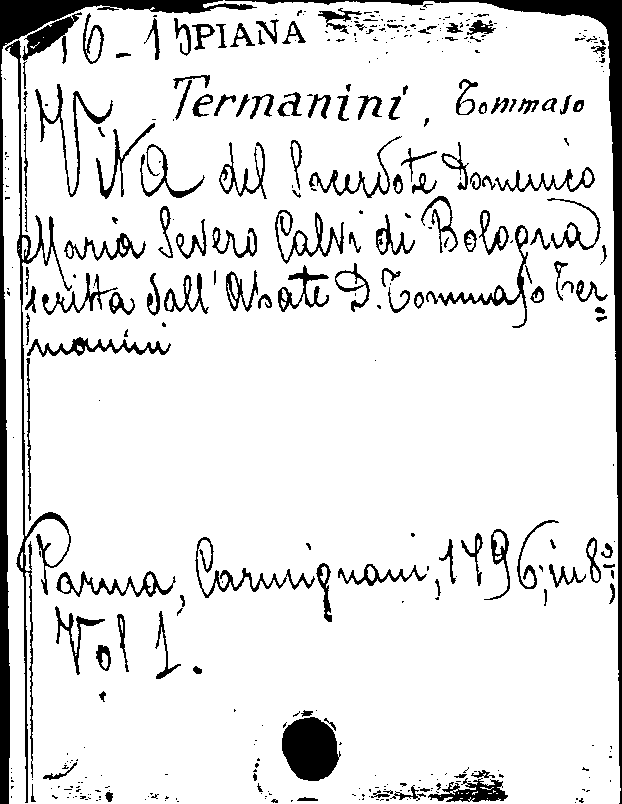 16-15 PIANA
Termanini, Tommaso
Vita del Sacerdote Domenico
Maria Severo Calvi di Bologna,
scritta dall'Abate D. Tommaso Ter=
manini
Parma, Carmignani, 1796; in 8º;
Vol 1.